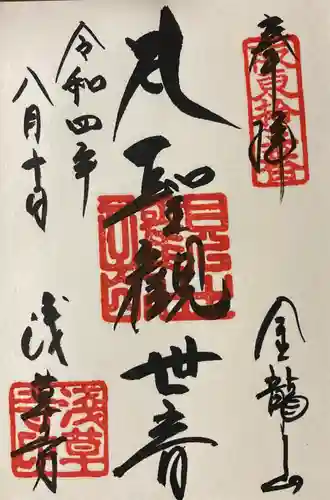 奉拝
坂東拾三番
金龍山
聖観世音
令和四年
八月十日
浅草寺
浅草